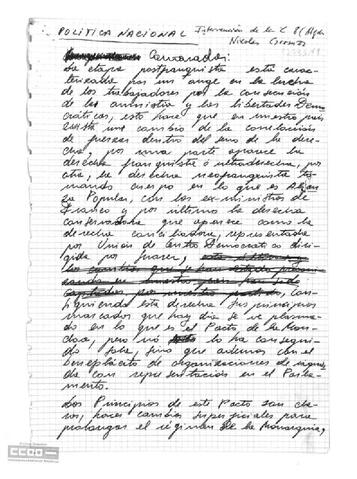 POLITICA NACIONAL Intervención de la
Nicolas
Camaradas:
La etapa postfranquista está carac-
terizada por un auge en la lucha
de los trabajadores por la consecución
de la amnistia y las libertades Demo
cráticas, esto hace que en nuestro país
exista un cambio de la correlación
de fuerzas dentro del seno de la dere-
cha, por una parte aparece la
derecha franquista o ultraderecha, por
otra, la derecha neofranquista to-
mando cuerpo en lo que es Alian
za Popular, con los ex-ministros de
Franco y por ultimo la derecha
conservadora que aparece como la
derecha conciliadora, representada
por Union de Centro Democratico diri-
gida por Suarez,
con-
siguiendo esta derecha sus principios
marcados que hoy dia se ve plasma-
do en lo que es el Pacto de la Mon-
cloa, pero no lo ha consegui-
do sola, sino que ademas con el
beneplácito de organizaciones de izquier
da con representación en el Parla-
mento.
Los Principios de este Pacto son cla-
ros, hacer cambios superficiales para
prolongar el régimen de la Monarquia,
CCOO